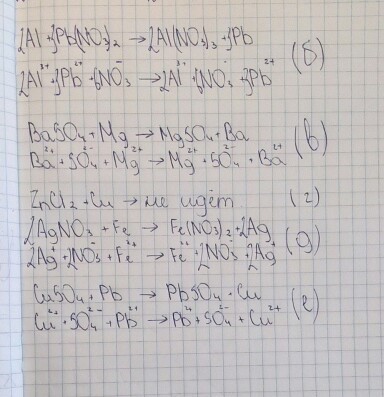 2Al + 3Pb(NO3)2 → 2Al(NO3)3 + 3Pb
2Al³⁺ + 3Pb²⁺ + 6NO⁻3 → 2Al³⁺ + 6NO⁻3 + 3Pb²⁺ (б)
BaSO4 + Mg → MgSO4 + Ba
Ba²⁺ + SO4²⁻ + Mg²⁺ → Mg²⁺ + SO4²⁻ + Ba²⁺ (в)
ZnCl2 + Cu → не идёт (г)
2AgNO3 + Fe → Fe(NO3)2 + 2Ag
2Ag⁺ + 2NO⁻3 + Fe²⁺ → Fe²⁺ + 2NO⁻3 + 2Ag⁺ (д)
CuSO4 + Pb → PbSO4 + Cu
Cu²⁺ + SO4²⁻ + Pb²⁺ → Pb²⁺ + SO4²⁻ + Cu²⁺ (е)